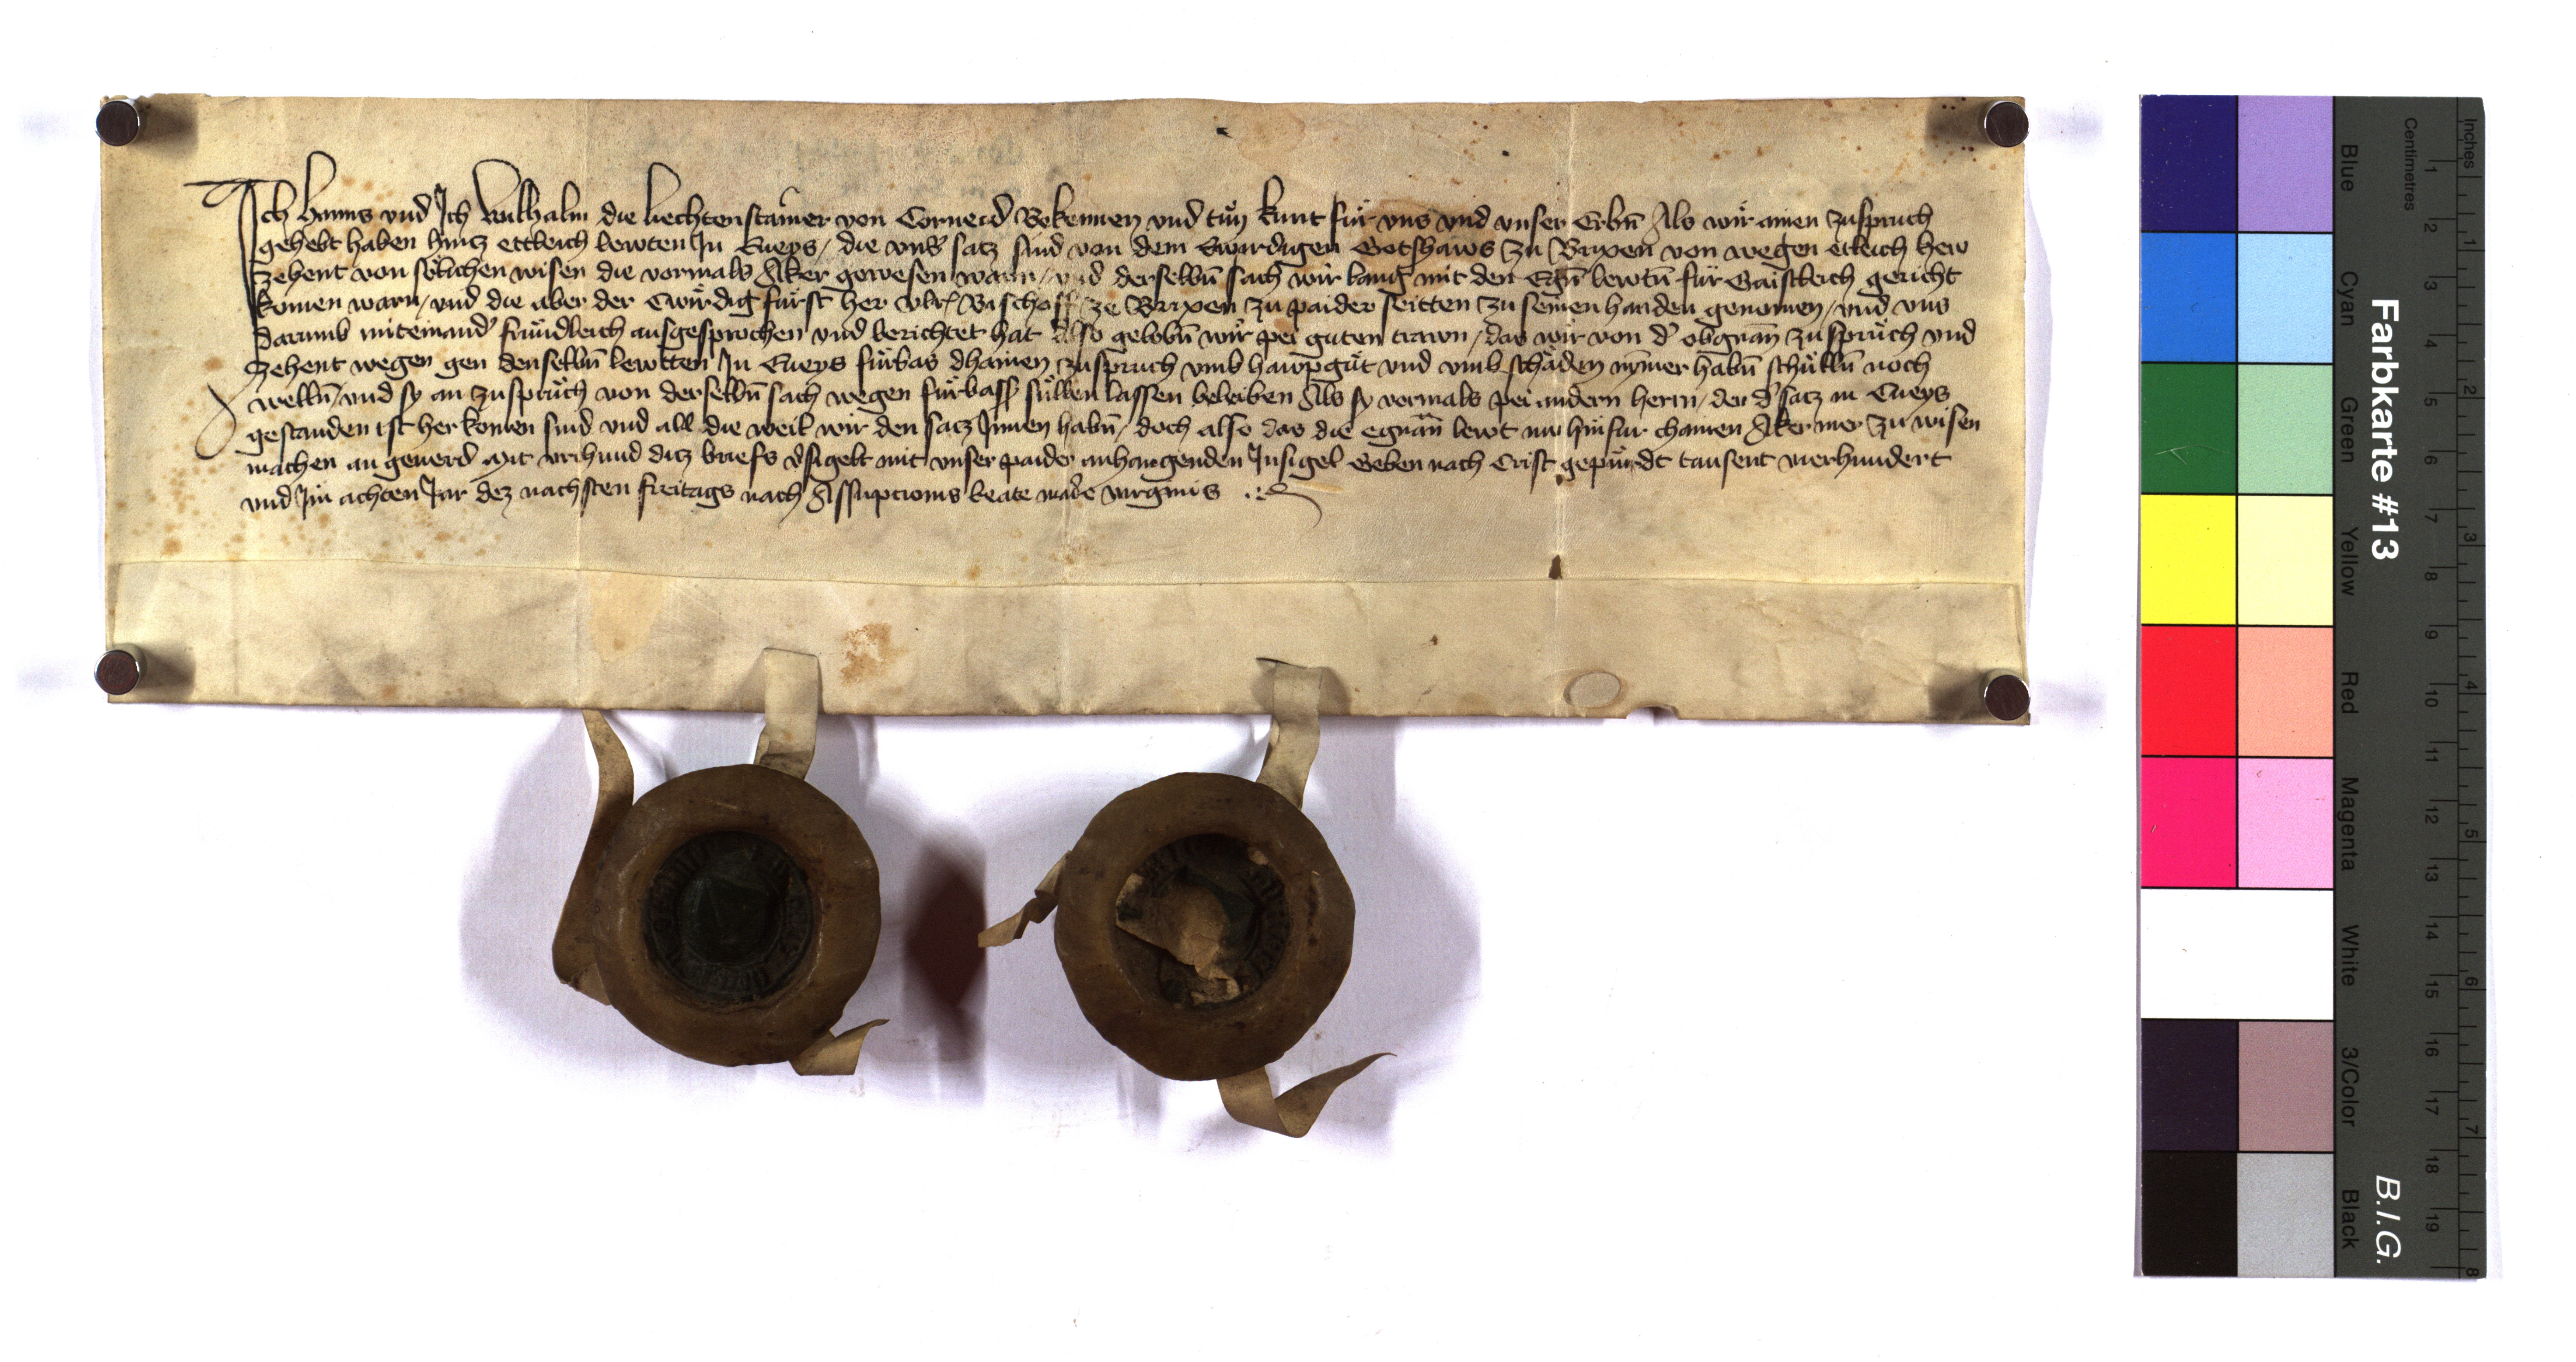 Ich Hanns vnd Ich Wilhalm die liechtenstainer von Corneid Bekennen vnd tůn kunt für vns vnd vnser Erbn̄ Als wir ainen zuspruch
gehebt haben hincz ettleich lewten Jn Eueys / die vnsʼ satz sind von dem Erwirdigen Gotshaws zu Brixen von wegen etleich hew
zehent von sölichen wisen die vormals Äker gewesen warn / vnd derselbn̄ sach wir lang mit den Egn̄ lewtn̄ für Gaistleich gericht
komen warn / vnd die aber der Erwirdig fürst her vlrʼ Bischoff ze Brixen zu paider seitten zu seinen handen genomen / vnd vns
darumb miteinandʼ fründleich ausgesprochen vnd berichtet hat Also gelobn̄ wir pei guten trewn / das wir von dʼ obgnan̄ zuspruch vnd
zehent wegen gen denselbn̄ lewtten Jn Eueys fürbas dhainen zuspruch vmb hawpgůt vnd vmb schäden nym̄er habn̄ schülln̄ noch
welln̄ / vnd sy an zuspruch von derselbn̄ sach wegen fürbass süllen lassen beleiben Als sy vormals pei andern herrn / den dʼ satz in Eueys
gestanden ist herkomen sind vnd all die weil wir den satz Jnnen habn̄ / doch also das die egnan̄ lewt nu hinfur chainen Äker mer zu wisen
machen an geuerd Mit vrchund ditz briefs vʼsigelt mit vnser paider anhangenden Jnsigel Geben nach Crist gepürdt tausent vierhundert
vnd Jm achten Jar dez nachsten freitags nach Assūpcionis beate marʼe virginis
Farbkarte #13
B.I.G.
Centimetres
Inches
Blue
Cyan
Green
Yellow
Red
Magenta
White
3/Color
Black
1 2 3 4 5 6 7 8 9 10 11 12 13 14 15 16 17 18 19
1 2 3 4 5 6 7 8